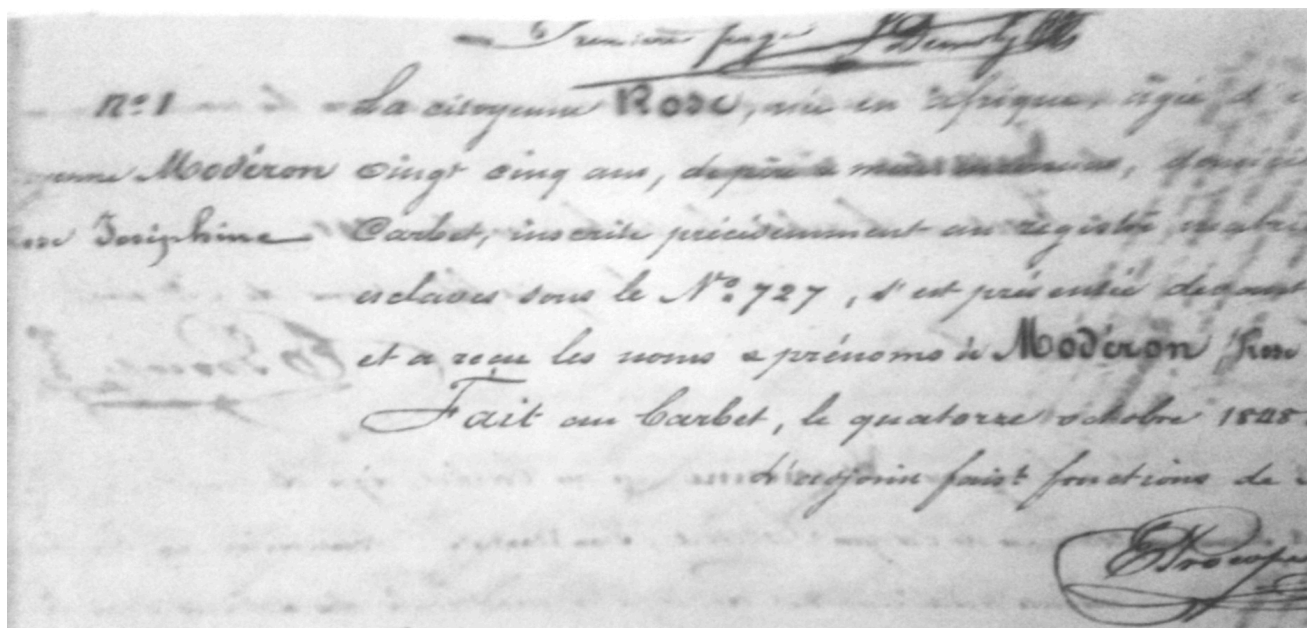 Première page
n° 1 La citoyenne Rose, née en afrique, âgée d'
Modéron vingt cinq ans, de père & mère inconnus,
Joséphine Carbet, inscrite précédemment au registre
esclaves sous le N° 727, s'est présentée devant
et a reçu les noms & prénoms de Modéron Rose
Fait au Carbet, le quatorze octobre 1848.
L'adjoint fais.t fonctions de
EProcope